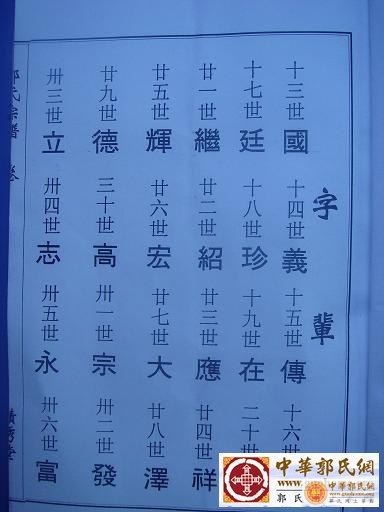 字輩
十三世 國 十四世 義 十五世 傳 十六世
十七世 廷 十八世 珍 十九世 在 二十
廿一世 繼 廿二世 紹 廿三世 應 廿四世 祥
廿五世 輝 廿六世 宏 廿七世 大 廿八世 澤
廿九世 德 三十世 高 卅一世 宗 卅二世 發
卅三世 立 卅四世 志 卅五世 永 卅六世 富
郭氏宗譜 卷
中華郭氏網
郭氏
中華郭氏網